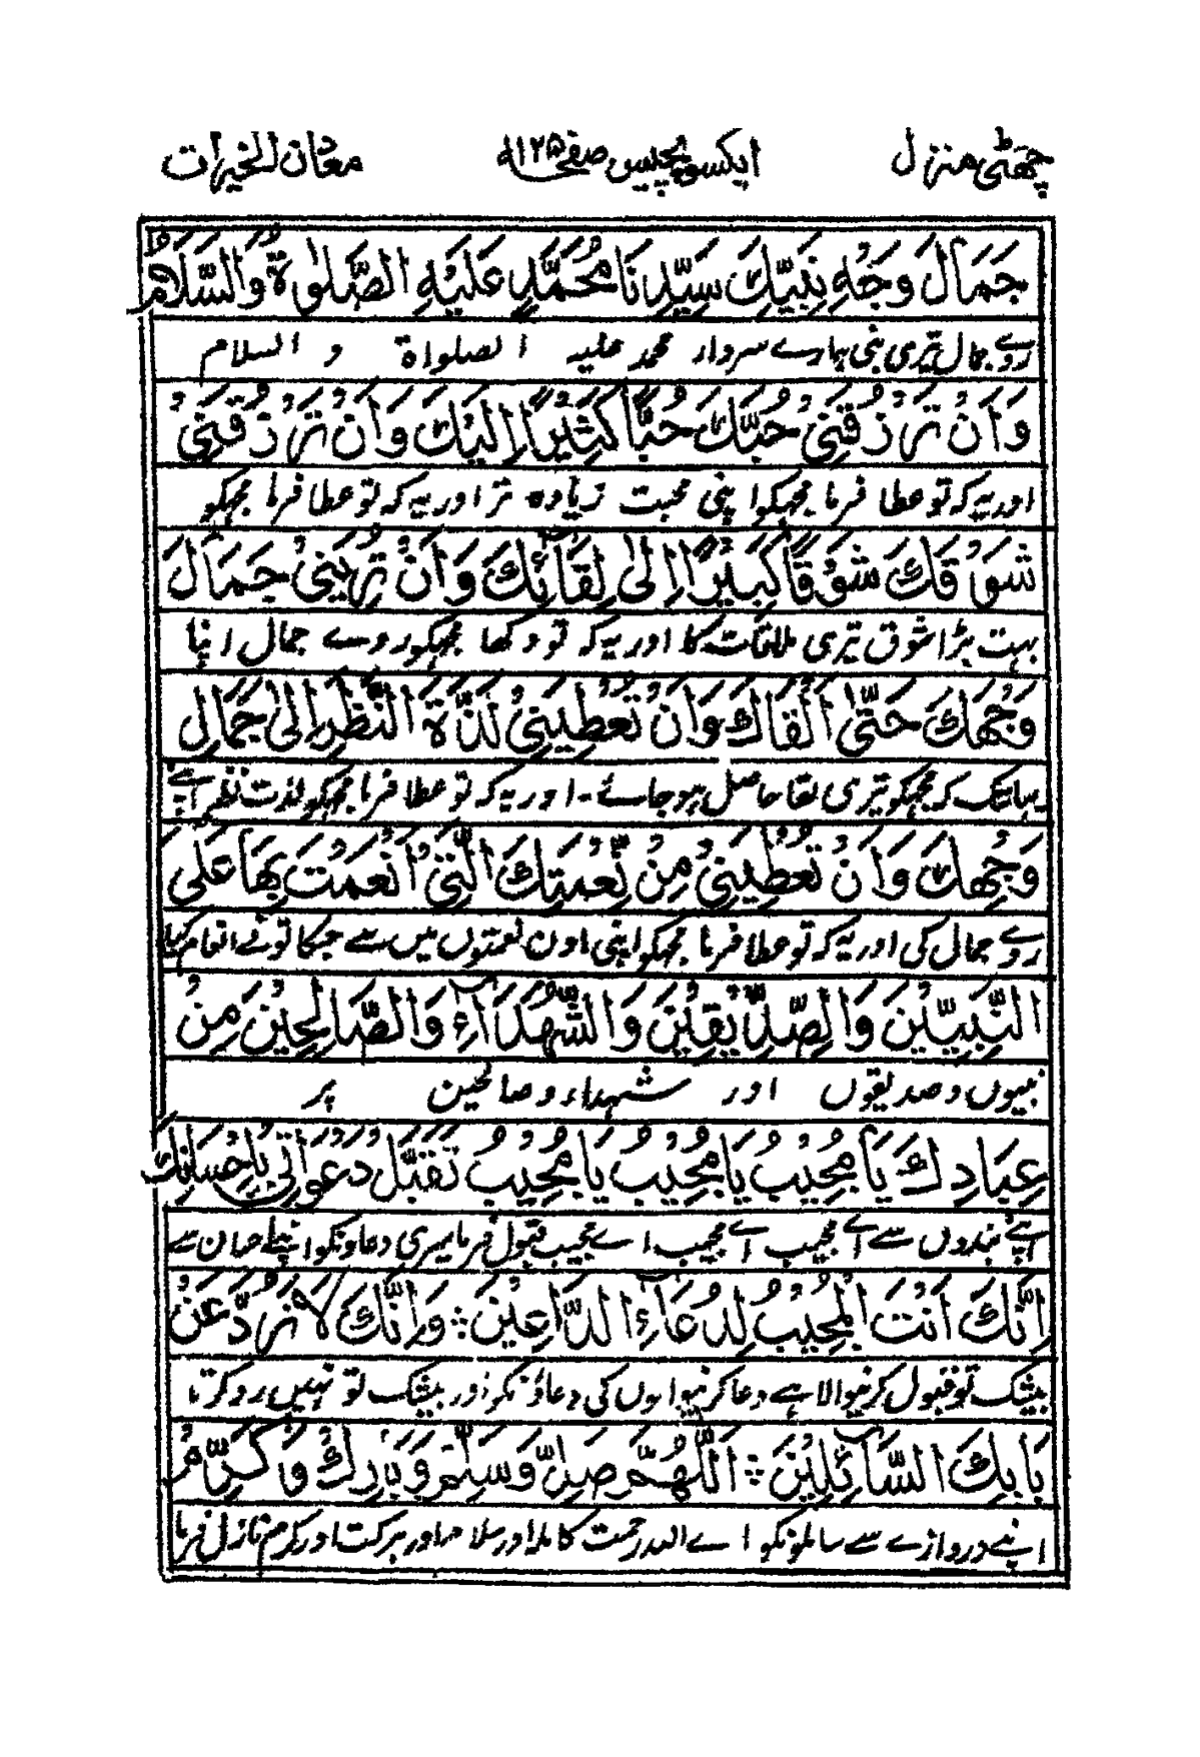 چھٹی منزل ایکسو پچیس صفحہ ۱۲۵ معادن الخیرات
جَمَالَ وَجْهِ نَبِيِّكَ سَيِّدِنَا مُحَمَّدٍ عَلَيْهِ الصَّلٰوةُ وَالسَّلَامُ
روے جمال تیری نبی ہمارے سردار محمد علیہ الصلواۃ و السلام
وَاَنْ تَرْزُقَنِيْ حُبَّكَ حُبًّا كَثِيْرًا اِلَيْكَ وَاَنْ تَرْزُقَنِيْ
اور یہ کہ تو عطا فرما مجہکو اپنی محبت زیادہ تر اور یہ کہ تو عطا فرما مجہکو
شَوْقَكَ شَوْقًا كَبِيْرًا اِلٰى لِقَآئِكَ وَاَنْ تُرِيَنِيْ جَمَالَ
بہت بڑا شوق تیری ملاقات کا اور یہ کہ تو دکھا مجہکو روے جمال اپنا
وَجْهِكَ حَتّٰى اَلْقَاكَ وَاَنْ تُعْطِيَنِيْ لَذَّةَ النَّظَرِ اِلٰى جَمَالِ
یہانتک کہ مجہکو تیری لقا حاصل ہو جائے۔ اور یہ کہ تو عطا فرما مجہکو لذت نظر اپنے
وَجْهِكَ وَاَنْ تُعْطِيَنِيْ مِنْ نِّعْمَتِكَ الَّتِيْ اَنْعَمْتَ بِهَا عَلَى
روے جمال کی اور یہ کہ تو عطا فرما مجہکو اپنی اون نعمتوں میں سے جسکا تونے انعام کیا
النَّبِيِّيْنَ وَالصِّدِّيْقِيْنَ وَالشُّهَدَآءِ وَالصَّالِحِيْنَ مِنْ
نبیوں و صدیقوں اور شہداء و صالحین پر
عِبَادِكَ يَا مُجِيْبُ يَا مُجِيْبُ يَا مُجِيْبُ تَقَبَّلْ دَعْوَاتِيْ بِاِحْسَانِكَ
اپنے بندوں سے اے مجیب اے مجیب اے مجیب قبول فرما میری دعاونکو اپنے احسان سے
اِنَّكَ اَنْتَ الْمُجِيْبُ لِدُعَآءِ الدَّاعِيْنَ ۞ وَاِنَّكَ لَا تَرُدُّ عَنْ
بیشک تو قبول کرنیوالا ہے دعا کرنیوالوں کی دعاؤنکو اور بیشک تو نہیں رد کرتا
بَابِكَ السَّآئِلِيْنَ ۞ اَللّٰهُمَّ صَلِّ وَسَلِّمْ وَبَارِكْ وَكَرِّمْ
اپنے دروازے سے سائلونکو اے اللہ رحمت کاملہ اور سلام اور برکت اور کرم نازل فرما